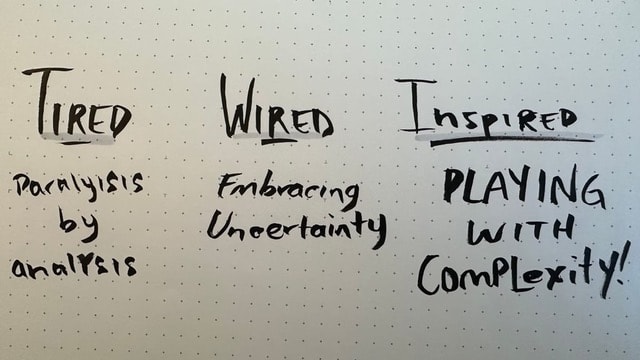 TIRED
WIRED
InspIRED
Paralyisis
by
analysis
Embracing
Uncertainty
PLAYING
WITH
ComPLexity!